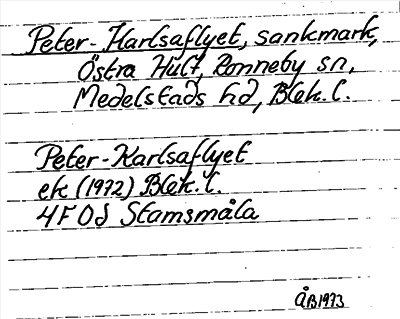 Peter-Karlsaflyet, sankmark,
Östra Hult, Ronneby sn,
Medelstads hd, Blek.l.
Peter-Karlsaflyet
ek (1972) Blek.l.
4F 0d Stamsmåla
ÅB1973